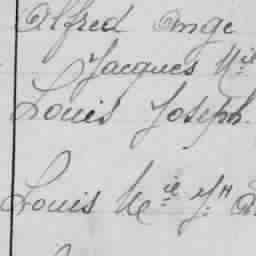 Alfred Ange
Jacques M.ie
Louis Joseph
Louis M.ie J.h